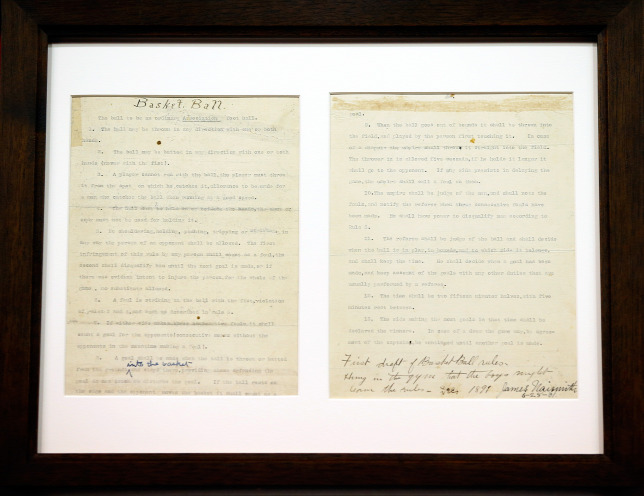 Basket Ball.
The ball to be an ordinary Association foot ball.
1. The ball may be thrown in any direction with one or both
hands.
2. The ball may be batted in any direction with one or both
hands (never with the fist).
3. A player cannot run with the ball, the player must throw
it from the spot on which he catches it, allowance to be made for
a man who catches the ball when running at a good speed.
4. The ball must be held in or between the hands, the arms or
body must not be used for holding it.
5. No shouldering, holding, pushing, tripping or striking in
any way the person of an opponent shall be allowed. The first
infringement of this rule by any person shall count as a foul, the
second shall disqualify him until the next goal is made, or if
there was evident intent to injure the person, for the whole of the
game, no substitute allowed.
6. A foul is striking at the ball with the fist, violation
of rules 3 and 4 and such as described in rule 5.
7. If either side makes three consecutive fouls it shall
count a goal for the opponents
8. A goal shall be made when the ball is thrown or batted
into the basket
from the grounds
goal
9. When the ball goes out of bounds it shall be thrown into
the field, and played by the person first touching it. In case
of a dispute the umpire shall throw it straight into the field.
The thrower in is allowed five seconds, if he holds it longer it
shall go to the opponent. If any side persists in delaying the
game, the umpire shall call a foul on them.
10. The umpire shall be judge of the men, and shall note the
fouls, and notify the referee when three consecutive fouls have
been made. He shall have power to disqualify men according to
Rule 5.
11. The referee shall be judge of the ball and shall decide
when the ball is in play, in bounds, and to which side it belongs,
and shall keep the time. He shall decide when a goal has been
made, and keep account of the goals with any other duties that are
usually performed by a referee.
12. The time shall be two fifteen minutes halves, with five
minutes rest between.
13. The side making the most goals in that time shall be
declared the winners. In case of a draw the game may, by agree-
ment of the captains, be continued until another goal is made.
First draft of Basket Ball rules.
Hung in the gym that the boys might
learn the rules - Dec 1891 James Naismith
6-28-31